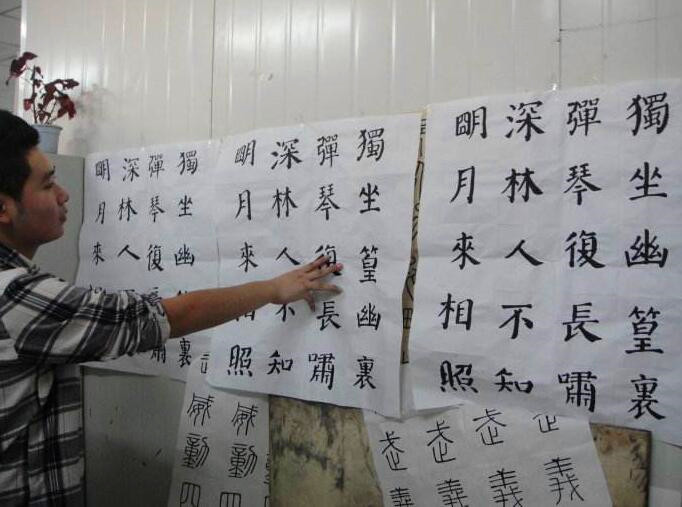 獨坐幽篁裏
彈琴復長嘯
深林人不知
明月來相照
獨坐篁幽裏
彈琴復長嘯
深林人不知
明月來相照
獨坐幽裏
彈琴復長嘯
深林人不
明月來相
義
義
義
動四
威動四